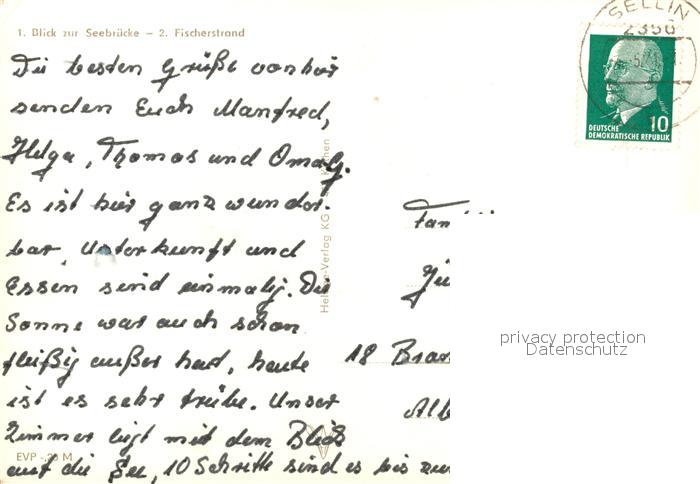 1. Blick zur Seebrücke – 2. Fischerstrand
SELLIN
2356
DEUTSCHE
DEMOKRATISCHE REPUBLIK
10
Die besten Grüße von hier
senden Euch Manfred,
Helga, Thomas und Oma G.
Es ist hier ganz wunder-
bar, Unterkunft und
Essen sind einmalig. Die
Sonne war auch schon
fleißig außer heut, heute
ist es sehr trübe. Unser
Zimmer liegt mit dem Blick
auf die See, 10 Schritte sind es bis zur
Fam
Jü
18 Bran
Alb
EVP -,20 M
privacy protection
Datenschutz